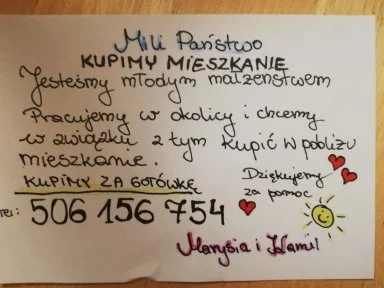 Mili Państwo
KUPIMY MIESZKANIE
Jesteśmy młodym małżeństwem
Pracujemy w okolicy i chcemy
w związku z tym kupić w pobliżu
mieszkanie.
KUPIMY ZA GOTÓWKĘ
Dziękujemy
za pomoc
tel: 506 156 754
Marysia i Kamil